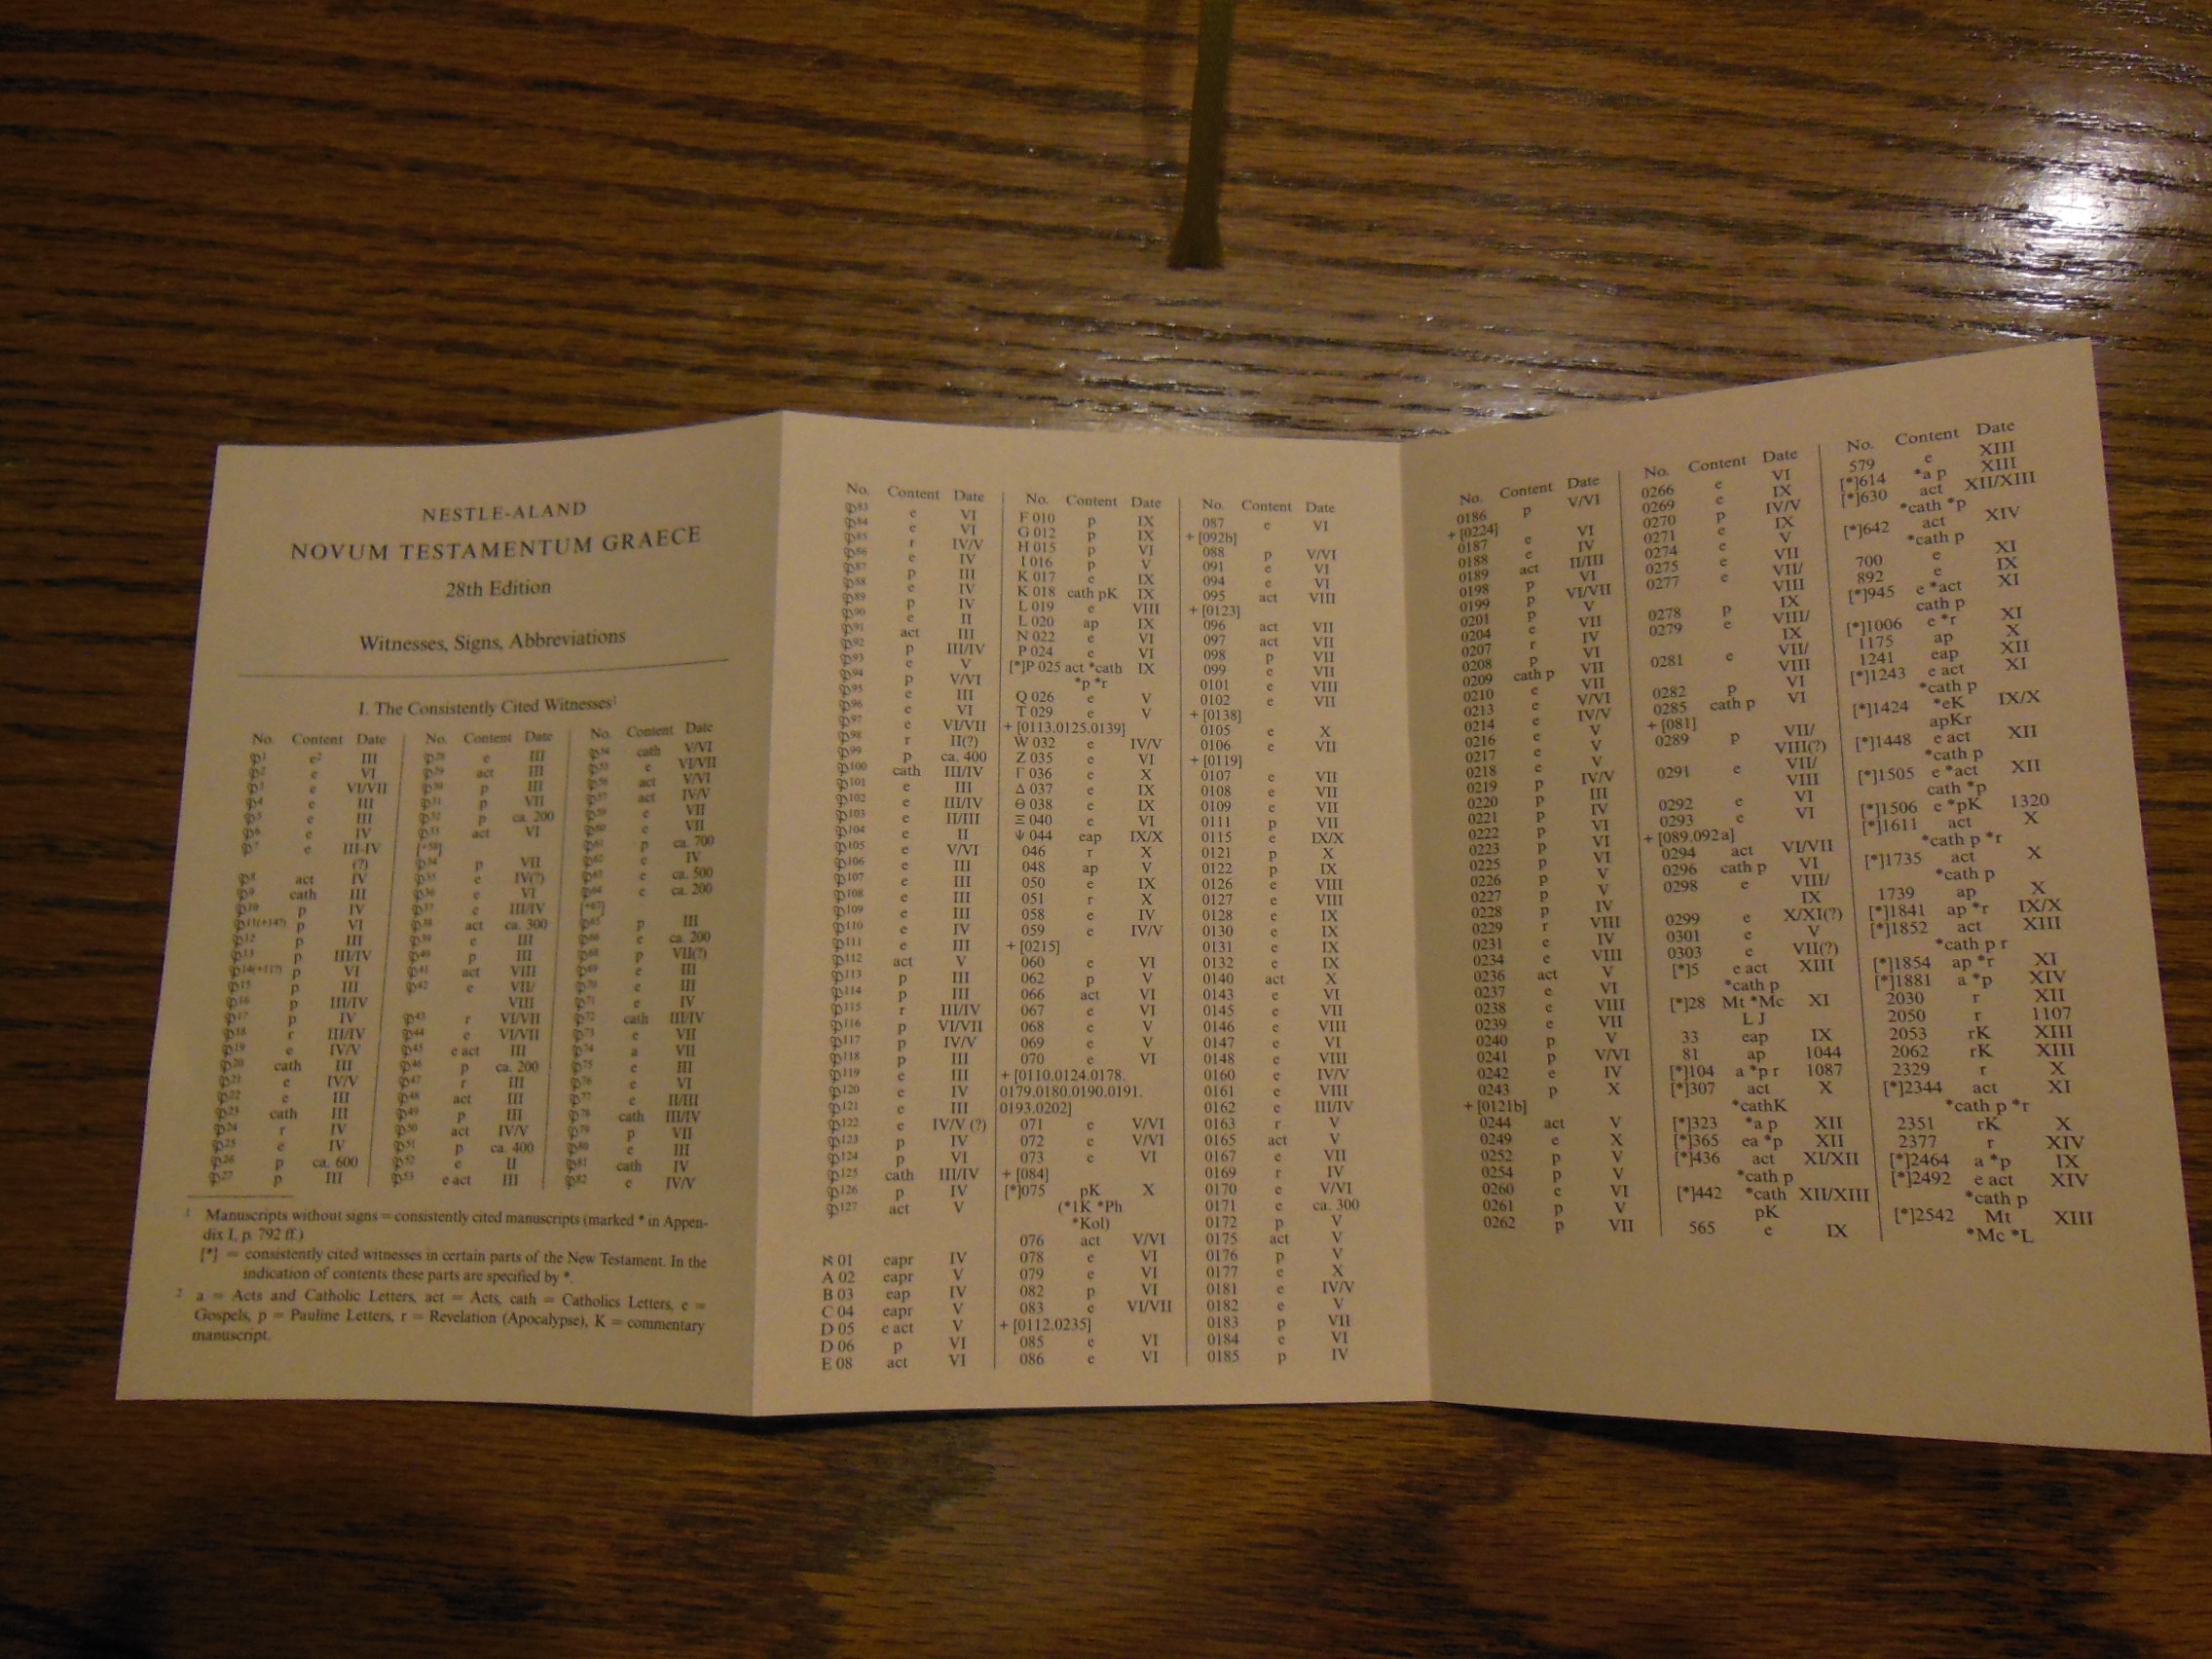 NESTLE-ALAND
NOVUM TESTAMENTUM GRAECE
28th Edition
Witnesses, Signs, Abbreviations
I. The Consistently Cited Witnesses¹
No. Content Date
𝔓1 e² III
𝔓2 e VI
𝔓3 e VI/VII
𝔓4 e III
𝔓5 e III
𝔓6 e IV
𝔓7 e III-IV
(?)
𝔓8 act IV
𝔓9 cath III
𝔓10 p IV
𝔓11(+14?) p VI
𝔓12 p III
𝔓13 p III/IV
𝔓14(+11?) p VI
𝔓15 p III
𝔓16 p III/IV
𝔓17 p IV
𝔓18 r III/IV
𝔓19 e IV/V
𝔓20 cath III
𝔓21 e IV/V
𝔓22 e III
𝔓23 cath III
𝔓24 r IV
𝔓25 e IV
𝔓26 p ca. 600
𝔓27 p III
No. Content Date
𝔓28 e III
𝔓29 act III
𝔓30 p III
𝔓31 p VII
𝔓32 p ca. 200
𝔓33 act VI
[+58]
𝔓34 p VII
𝔓35 e IV(?)
𝔓36 e VI
𝔓37 e III/IV
𝔓38 act ca. 300
𝔓39 e III
𝔓40 p III
𝔓41 act VIII
𝔓42 e VII/
VIII
𝔓43 r VI/VII
𝔓44 e VI/VII
𝔓45 e act III
𝔓46 p ca. 200
𝔓47 r III
𝔓48 act III
𝔓49 p III
𝔓50 act IV/V
𝔓51 p ca. 400
𝔓52 e II
𝔓53 e act III
No. Content Date
𝔓54 cath V/VI
𝔓55 e VI/VII
𝔓56 act V/VI
𝔓57 act IV/V
𝔓59 e VII
𝔓60 e VII
𝔓61 p ca. 700
𝔓62 e IV
𝔓63 e ca. 500
𝔓64 e ca. 200
[+67]
𝔓65 p III
𝔓66 e ca. 200
𝔓68 p VII(?)
𝔓69 e III
𝔓70 e III
𝔓71 e IV
𝔓72 cath III/IV
𝔓73 e VII
𝔓74 a VII
𝔓75 e III
𝔓76 e VI
𝔓77 e II/III
𝔓78 cath III/IV
𝔓79 p VII
𝔓80 e III
𝔓81 cath IV
𝔓82 e IV/V
1 Manuscripts without signs = consistently cited manuscripts (marked * in Appen-
dix I, p. 792 ff.)
[*] = consistently cited witnesses in certain parts of the New Testament. In the
indication of contents these parts are specified by *.
2 a = Acts and Catholic Letters, act = Acts, cath = Catholics Letters, e =
Gospels, p = Pauline Letters, r = Revelation (Apocalypse), K = commentary
manuscript.
No. Content Date
𝔓83 e VI
𝔓84 e VI
𝔓85 r IV/V
𝔓86 e IV
𝔓87 p III
𝔓88 e IV
𝔓89 p IV
𝔓90 e II
𝔓91 act III
𝔓92 p III/IV
𝔓93 e V
𝔓94 p V/VI
𝔓95 e III
𝔓96 e VI
𝔓97 e VI/VII
𝔓98 r II(?)
𝔓99 p ca. 400
𝔓100 cath III/IV
𝔓101 e III
𝔓102 e III/IV
𝔓103 e II/III
𝔓104 e II
𝔓105 e V/VI
𝔓106 e III
𝔓107 e III
𝔓108 e III
𝔓109 e III
𝔓110 e IV
𝔓111 e III
𝔓112 act V
𝔓113 p III
𝔓114 p III
𝔓115 r III/IV
𝔓116 p VI/VII
𝔓117 p IV/V
𝔓118 p III
𝔓119 e III
𝔓120 e IV
𝔓121 e III
𝔓122 e IV/V (?)
𝔓123 p IV
𝔓124 p VI
𝔓125 cath III/IV
𝔓126 p IV
𝔓127 act V
ℵ 01 eapr IV
A 02 eapr V
B 03 eap IV
C 04 eapr V
D 05 e act V
D 06 p VI
E 08 act VI
No. Content Date
F 010 p IX
G 012 p IX
H 015 p VI
I 016 p V
K 017 e IX
K 018 cath pK IX
L 019 e VIII
L 020 ap IX
N 022 e VI
P 024 e VI
[*]P 025 act *cath IX
*p *r
Q 026 e V
T 029 e V
+ [0113.0125.0139]
W 032 e IV/V
Z 035 e VI
Γ 036 e X
Δ 037 e IX
Θ 038 e IX
Ξ 040 e VI
Ψ 044 eap IX/X
046 r X
048 ap V
050 e IX
051 r X
058 e IV
059 e IV/V
+ [0215]
060 e VI
062 p V
066 act VI
067 e VI
068 e V
069 e V
070 e VI
+ [0110.0124.0178.
0179.0180.0190.0191.
0193.0202]
071 e V/VI
072 e V/VI
073 e VI
+ [084]
[*]075 pK X
(*1K *Ph
*Kol)
076 act V/VI
078 e VI
079 e VI
082 p VI
083 e VI/VII
+ [0112.0235]
085 e VI
086 e VI
No. Content Date
087 e VI
+ [092b]
088 p V/VI
091 e VI
094 e VI
095 act VIII
+ [0123]
096 act VII
097 act VII
098 p VII
099 e VII
0101 e VIII
0102 e VII
+ [0138]
0105 e X
0106 e VII
+ [0119]
0107 e VII
0108 e VII
0109 e VII
0111 p VII
0115 e IX/X
0121 p X
0122 p IX
0126 e VIII
0127 e VIII
0128 e IX
0130 e IX
0131 e IX
0132 e IX
0140 act X
0143 e VI
0145 e VII
0146 e VIII
0147 e VI
0148 e VIII
0160 e IV/V
0161 e VIII
0162 e III/IV
0163 r V
0165 act V
0167 e VII
0169 r IV
0170 e V/VI
0171 e ca. 300
0172 p V
0175 act V
0176 p V
0177 e X
0181 e IV/V
0182 e V
0183 p VII
0184 e VI
0185 p IV
No. Content Date
0186 p V/VI
+ [0224]
0187 e VI
0188 e IV
0189 act II/III
0198 p VI
0199 p VI/VII
0201 p V
0204 e VII
0207 r IV
0208 p VI
0209 cath p VII
0210 e VII
0213 e V/VI
0214 e IV/V
0216 e V
0217 e V
0218 e V
0219 p IV/V
0220 p III
0221 p IV
0222 p VI
0223 p VI
0225 p VI
0226 p V
0227 p V
0228 p IV
0229 r VIII
0231 e IV
0234 e VIII
0236 act V
0237 e VI
0238 e VIII
0239 e VII
0240 p V
0241 p V/VI
0242 e IV
0243 p X
+ [0121b]
0244 act V
0249 e X
0252 p V
0254 p V
0260 e VI
0261 p V
0262 p VII
No. Content Date
0266 e VI
0269 e IX
0270 p IV/V
0271 e IX
0274 e V
0275 e VII
0277 e VII/
VIII
0278 p IX
0279 e VIII/
IX
0281 e VII/
VIII
0282 p VI
0285 cath p VI
+ [081]
0289 p VII/
VIII(?)
0291 e VII/
VIII
0292 e VI
0293 e VI
+ [089.092a]
0294 act VI/VII
0296 cath p VI
0298 e VIII/
IX
0299 e X/XI(?)
0301 e V
0303 e VII(?)
[*]5 e act XIII
*cath p
[*]28 Mt *Mc XI
L J
33 eap IX
81 ap 1044
[*]104 a *p r 1087
[*]307 act X
*cathK
[*]323 *a p XII
[*]365 ea *p XII
[*]436 act XI/XII
*cath p
[*]442 *cath XII/XIII
pK
565 e IX
No. Content Date
579 e XIII
[*]614 *a p XIII
[*]630 act XII/XIII
*cath *p
[*]642 act XIV
*cath p
700 e XI
892 e IX
[*]945 e *act XI
cath p
[*]1006 e *r XI
1175 ap X
1241 eap XII
[*]1243 e act XI
*cath p
[*]1424 *eK IX/X
apKr
[*]1448 e act XII
*cath p
[*]1505 e *act XII
cath *p
[*]1506 e *pK 1320
[*]1611 act X
*cath p *r
[*]1735 act X
*cath p
1739 ap X
[*]1841 ap *r IX/X
[*]1852 act XIII
*cath p r
[*]1854 ap *r XI
[*]1881 a *p XIV
2030 r XII
2050 r 1107
2053 rK XIII
2062 rK XIII
2329 r X
[*]2344 act XI
*cath p *r
2351 rK X
2377 r XIV
[*]2464 a *p IX
[*]2492 e act XIV
*cath p
[*]2542 Mt XIII
*Mc *L